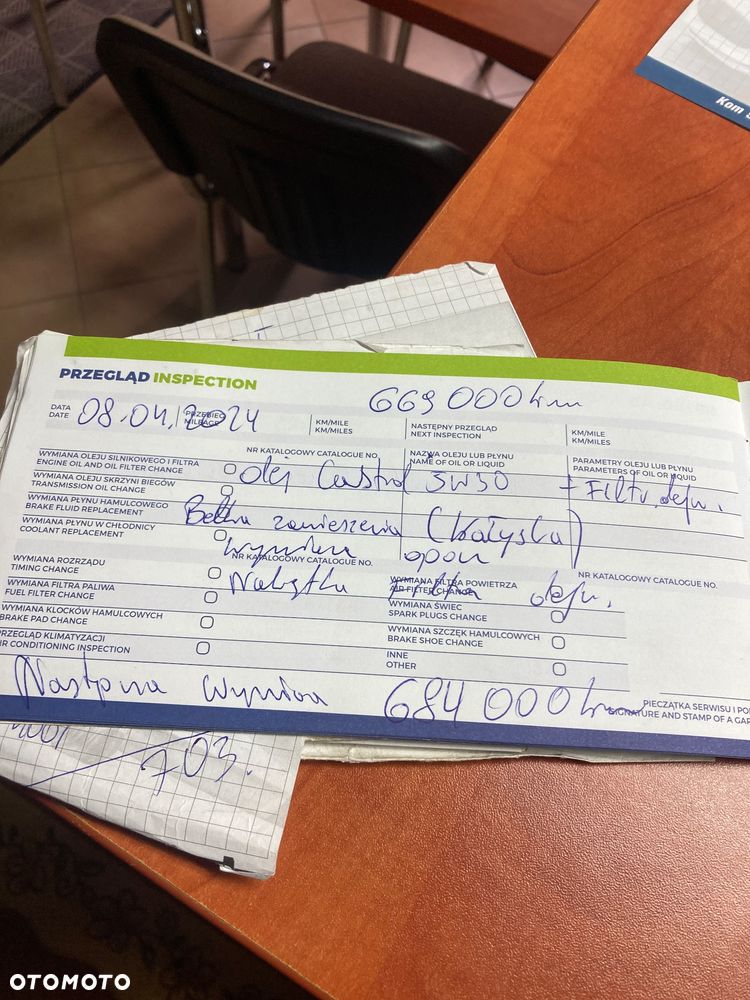 Kom
PRZEGLĄD INSPECTION
669 000 km
DATA
DATE
08.04.2024
PRZEBIEG
MILEAGE
KM/MILE
KM/MILES
NASTĘPNY PRZEGLĄD
NEXT INSPECTION
KM/MILE
KM/MILES
WYMIANA OLEJU SILNIKOWEGO I FILTRA
ENGINE OIL AND OIL FILTER CHANGE
NR KATALOGOWY CATALOGUE NO.
NAZWA OLEJU LUB PŁYNU
NAME OF OIL OR LIQUID
PARAMETRY OLEJU LUB PŁYNU
PARAMETERS OF OIL OR LIQUID
Olej Castrol 5W30 + Filtr oleju.
WYMIANA OLEJU SKRZYNI BIEGÓW
TRANSMISSION OIL CHANGE
WYMIANA PŁYNU HAMULCOWEGO
BRAKE FLUID REPLACEMENT
Belka zawieszenia (Kołyska)
WYMIANA PŁYNU W CHŁODNICY
COOLANT REPLACEMENT
wymiana opon
WYMIANA ROZRZĄDU
TIMING CHANGE
NR KATALOGOWY CATALOGUE NO.
WYMIANA FILTRA POWIETRZA
AIR FILTER CHANGE
NR KATALOGOWY CATALOGUE NO.
Nakrętka filtra oleju.
WYMIANA FILTRA PALIWA
FUEL FILTER CHANGE
WYMIANA ŚWIEC
SPARK PLUGS CHANGE
WYMIANA KLOCKÓW HAMULCOWYCH
BRAKE PAD CHANGE
WYMIANA SZCZĘK HAMULCOWYCH
BRAKE SHOE CHANGE
PRZEGLĄD KLIMATYZACJI
AIR CONDITIONING INSPECTION
INNE
OTHER
Następna wymiana 684 000 km
PIECZĄTKA SERWISU I
SIGNATURE AND STAMP OF A
703.
OTOMOTO